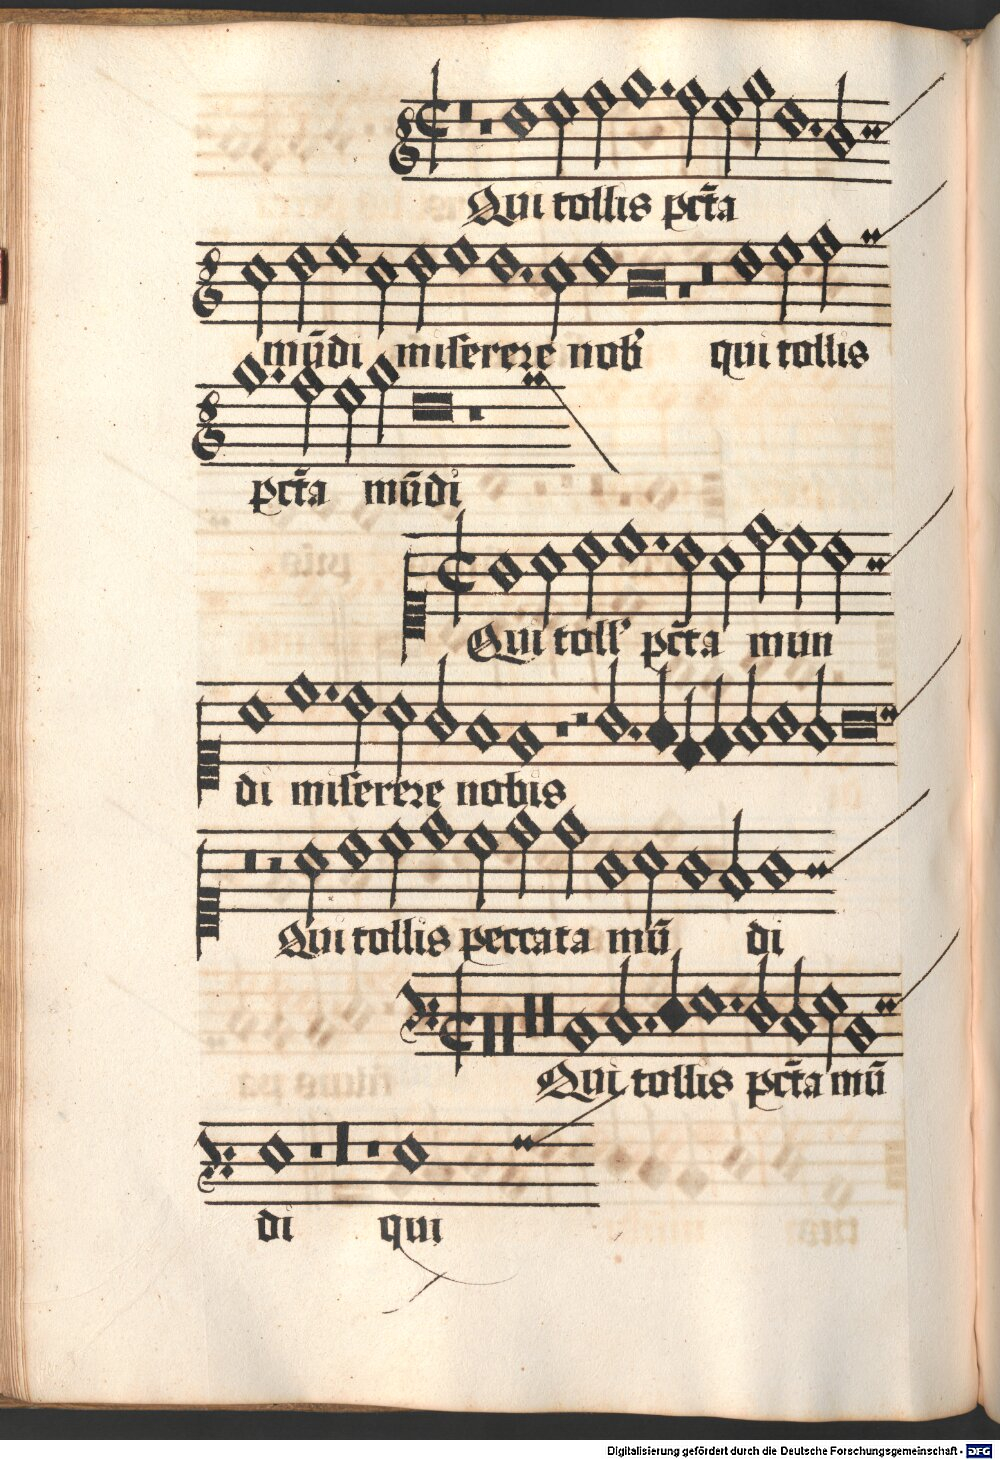 Qui tollis pct̄a
mūdi miserere nob' qui tollis
pct̄a mūdi
Qui toll' pct̄a mun
di miserere nobis
Qui tollis peccata mū di
Qui tollis pct̄a mū
di qui
Digitalisierung gefördert durch die Deutsche Forschungsgemeinschaft - DFG